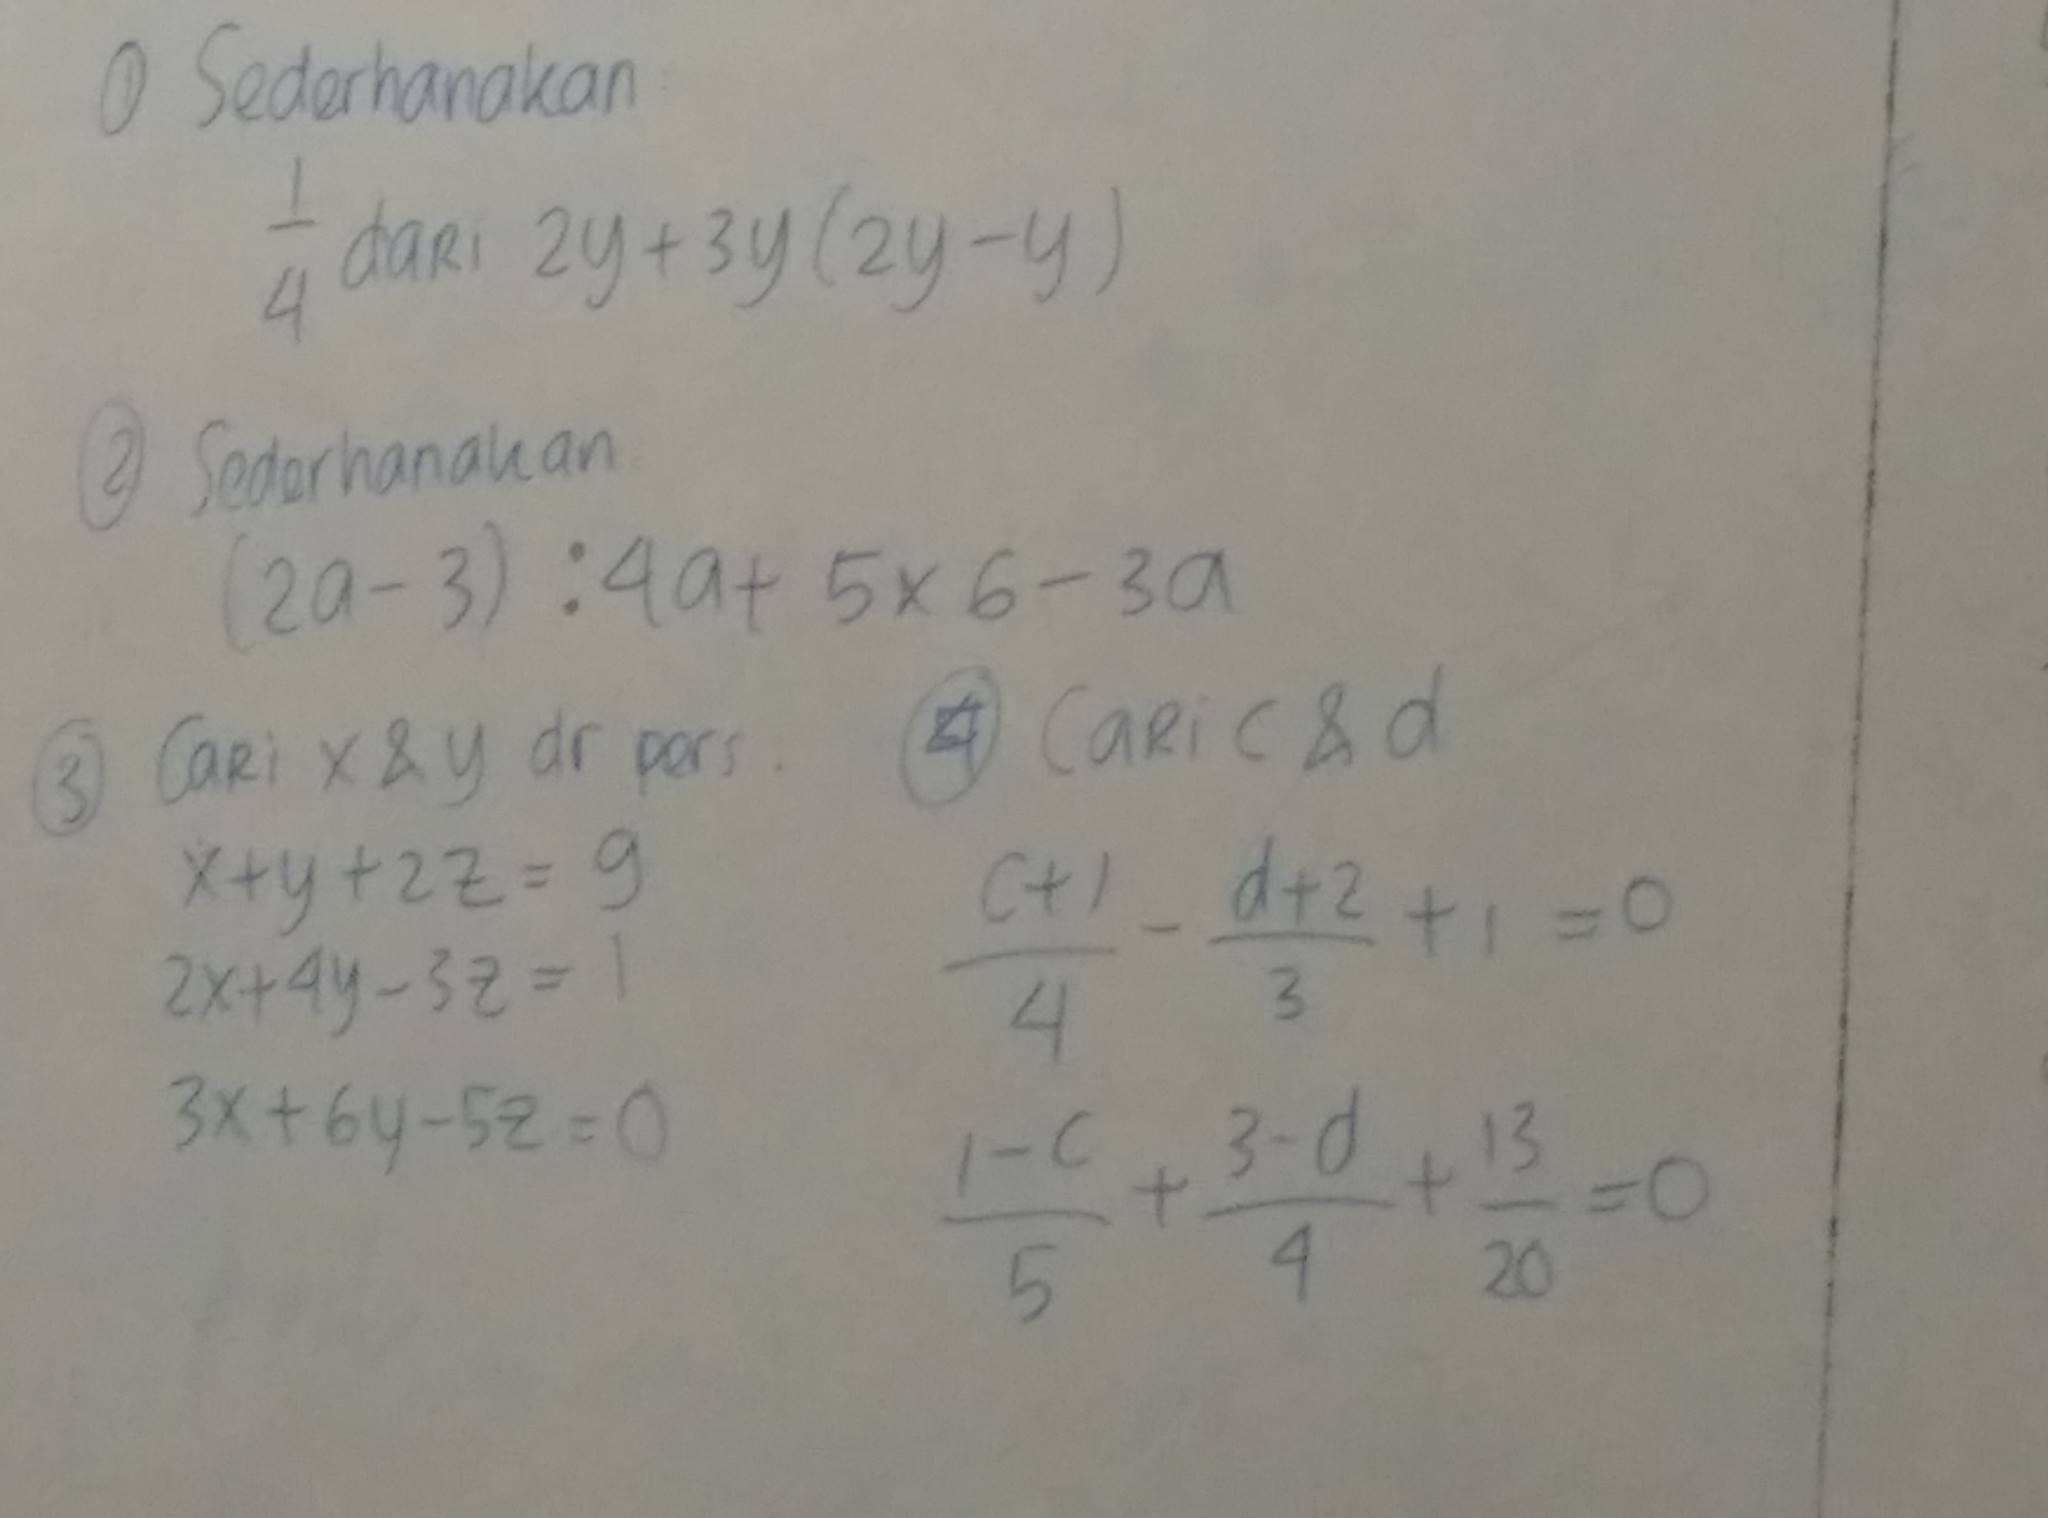 ① Sederhanakan
1/4 dari 2y+3y(2y-y)
② Sederhanakan
(2a-3) : 4a+ 5x6-3a
③ Cari x & y dr pers.
x+y+2z = 9
2x+4y-3z = 1
3x+6y-5z = 0
④ Cari c & d
(c+1)/4 - (d+2)/3 + 1 = 0
(1-c)/5 + (3-d)/4 + 13/20 = 0